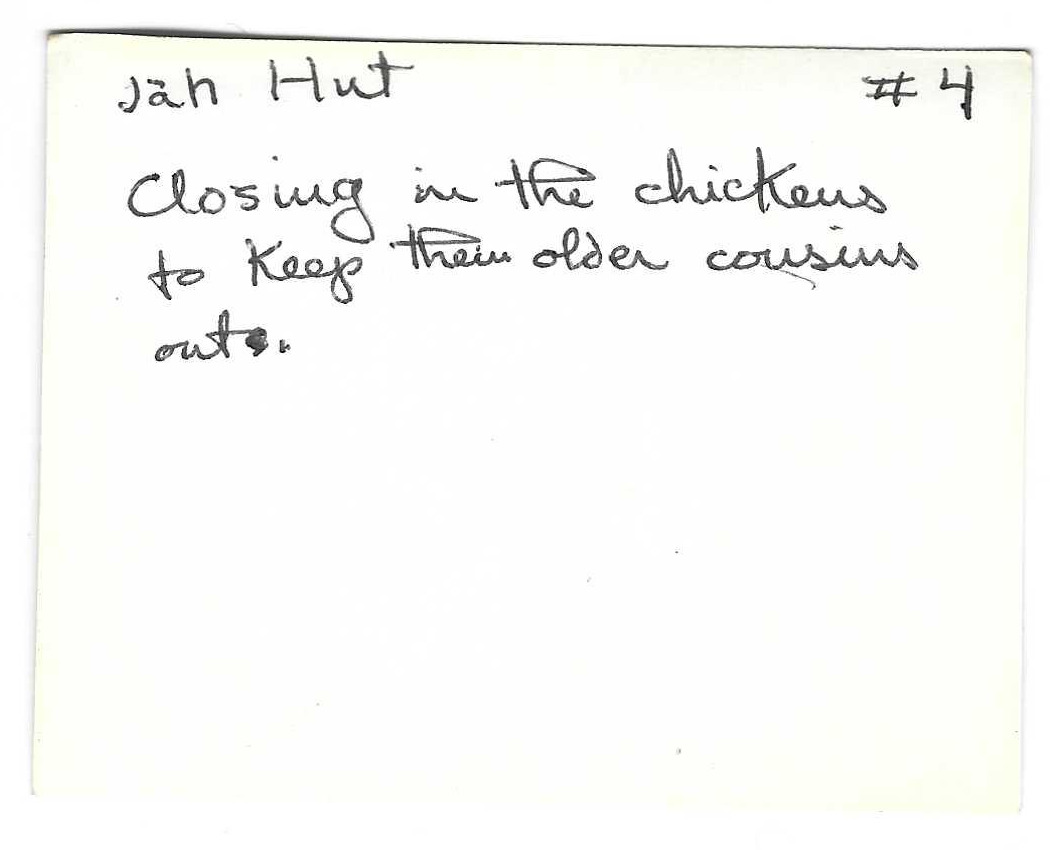 Jah Hut #4
Closing in the chickens
to keep their older cousins
out.